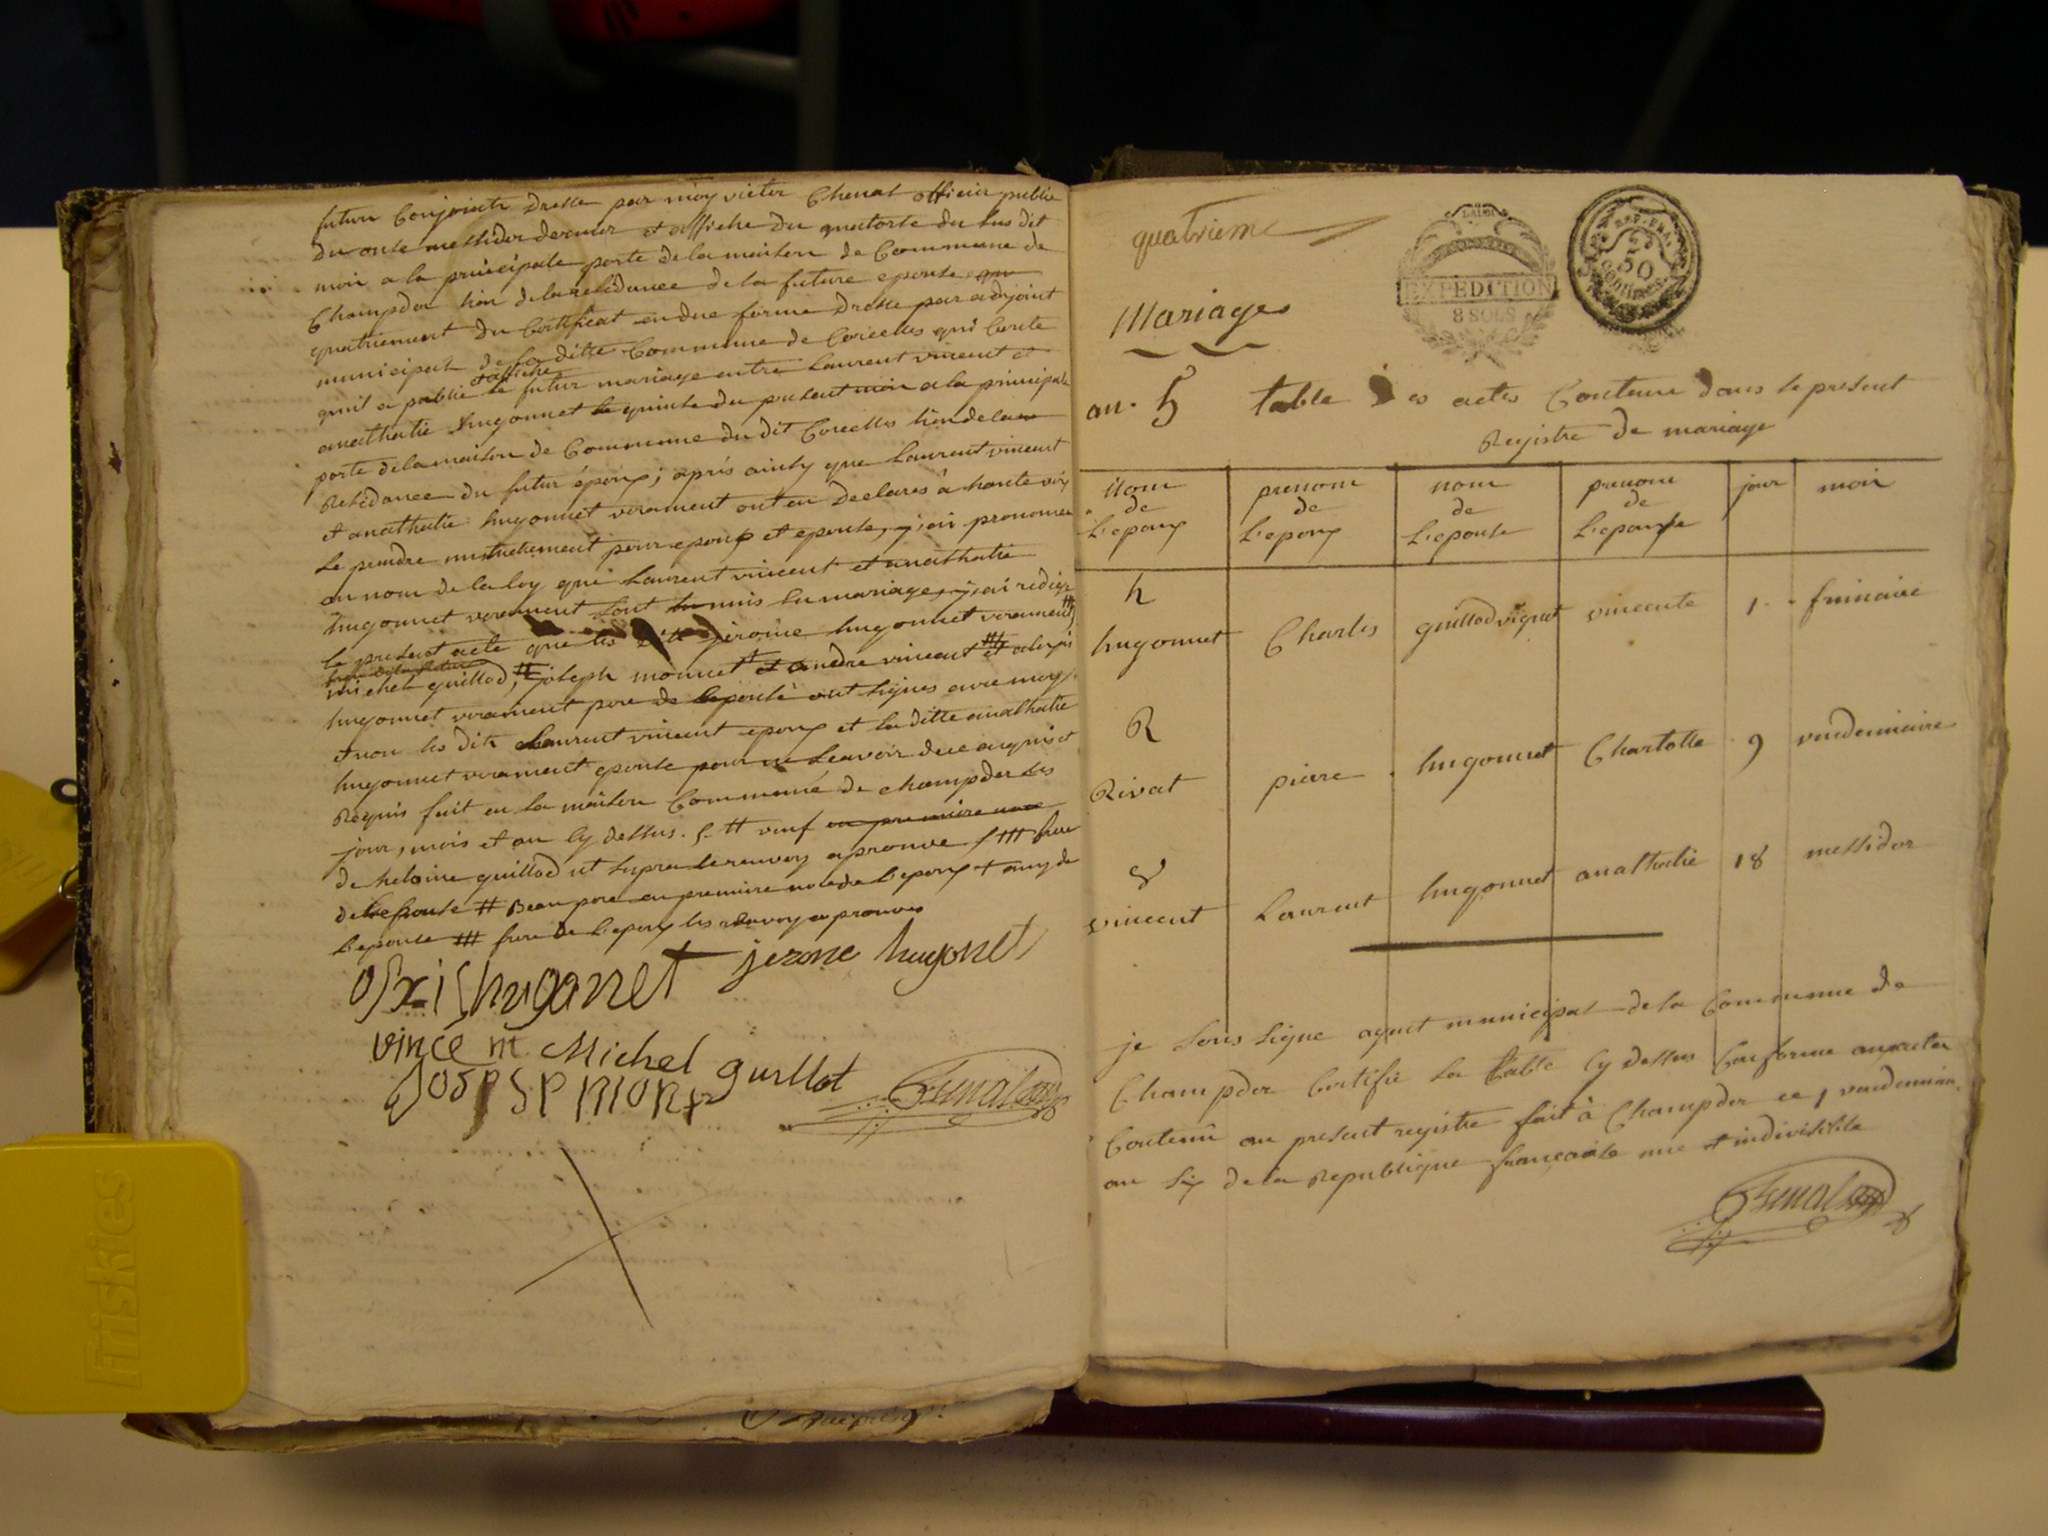 futur Conjoints Dresse par moy victor Chenal officier public
du onse messidor dernier et affiche du quatorse du sus dit
mois a la principale porte de la maison de Commune de
Champdor lieu de la residance de la future epouse
quatriement du Certificat en due forme Dresse par adjoint
municipal de la ditte Commune de Corcelles qui Conste
et affiche
quil a publie le futur mariage entre Laurent vincent et
anathalie hugonnet le quinse du present mois a la principale
porte de la maison de Commune du dit Corcelles lieu de la
Residance du futur époux; aprés ainsy que Laurent vincent
et anathalie hugonnet verament ont eu Declarés à haute voix
se prendre mutuelement pour epoux et epouse, j'ai prononcé
au nom de la loy que Laurent vincent et anathalie
hugonnet verament sont unis en mariage, j'ai redigé
le present acte que les jèroine hugonnet verament
michel guillod, joseph monnet et andre vincent et alexis
hugonnet verament pere de lepouse ont signes avec moy
et non les dits Laurent vincent epoux et la ditte anathalie
hugonnet verament epouse pour ne scavoir de ce enquis et
Requis fait en la maison Commune de champdor les
jour, mois et an cy dessus. veuf en premiere noce
de heloine guillod ut supra le renvoy aprouvé frere
de lepouse # Beau pere en premiere noce de l'epoux + amy de
l'epouse frere de l'epoux les renvoy aprouves
hugonnet jerome hugonet
vincent Michel guillot
Chenal
quatrieme
LA LOI
EXPEDITION
8 SOLS
REP. FRA.
50
Centimes
Mariages
an. 5 table Des actes Contenu dans le present
Registre de mariage
nom de L'epoux prenom de L'epoux nom de L'epouse prenom de L'epouse jour mois
h
hugonnet Charles guillod vignet vincente 1 frimaire
R
Rivat pierre hugonnet Charlotte 9 vendemiaire
V
vincent Laurent hugonnet anathalie 18 messidor
je sous signe agent municipal de la Commune de
Champdor Certifie la table cy dessus Conforme aux actes
Contenu au present registre fait à Champdor ce 1 vendemiaire
an six de la Republique francaise une et indivisible
Chenal
Friskies